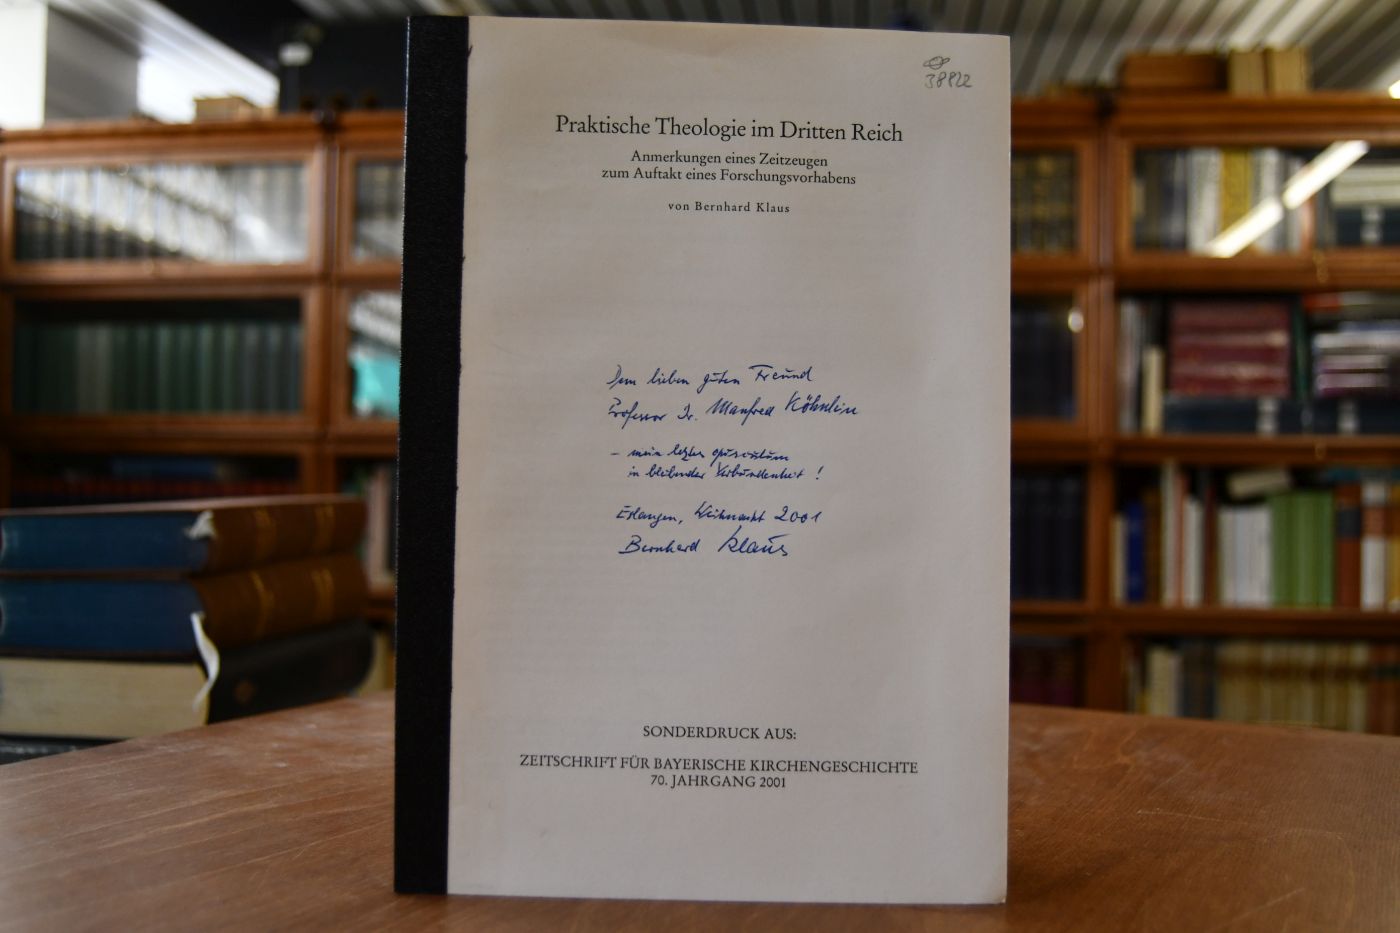 38822
Praktische Theologie im Dritten Reich
Anmerkungen eines Zeitzeugen
zum Auftakt eines Forschungsvorhabens
von Bernhard Klaus
Dem lieben guten Freund
Professor Dr. Manfred Köhnlein
– mein letztes opusculum
in bleibender Verbundenheit!
Erlangen, Weihnacht 2001
Bernhard Klaus
SONDERDRUCK AUS:
ZEITSCHRIFT FÜR BAYERISCHE KIRCHENGESCHICHTE
70. JAHRGANG 2001